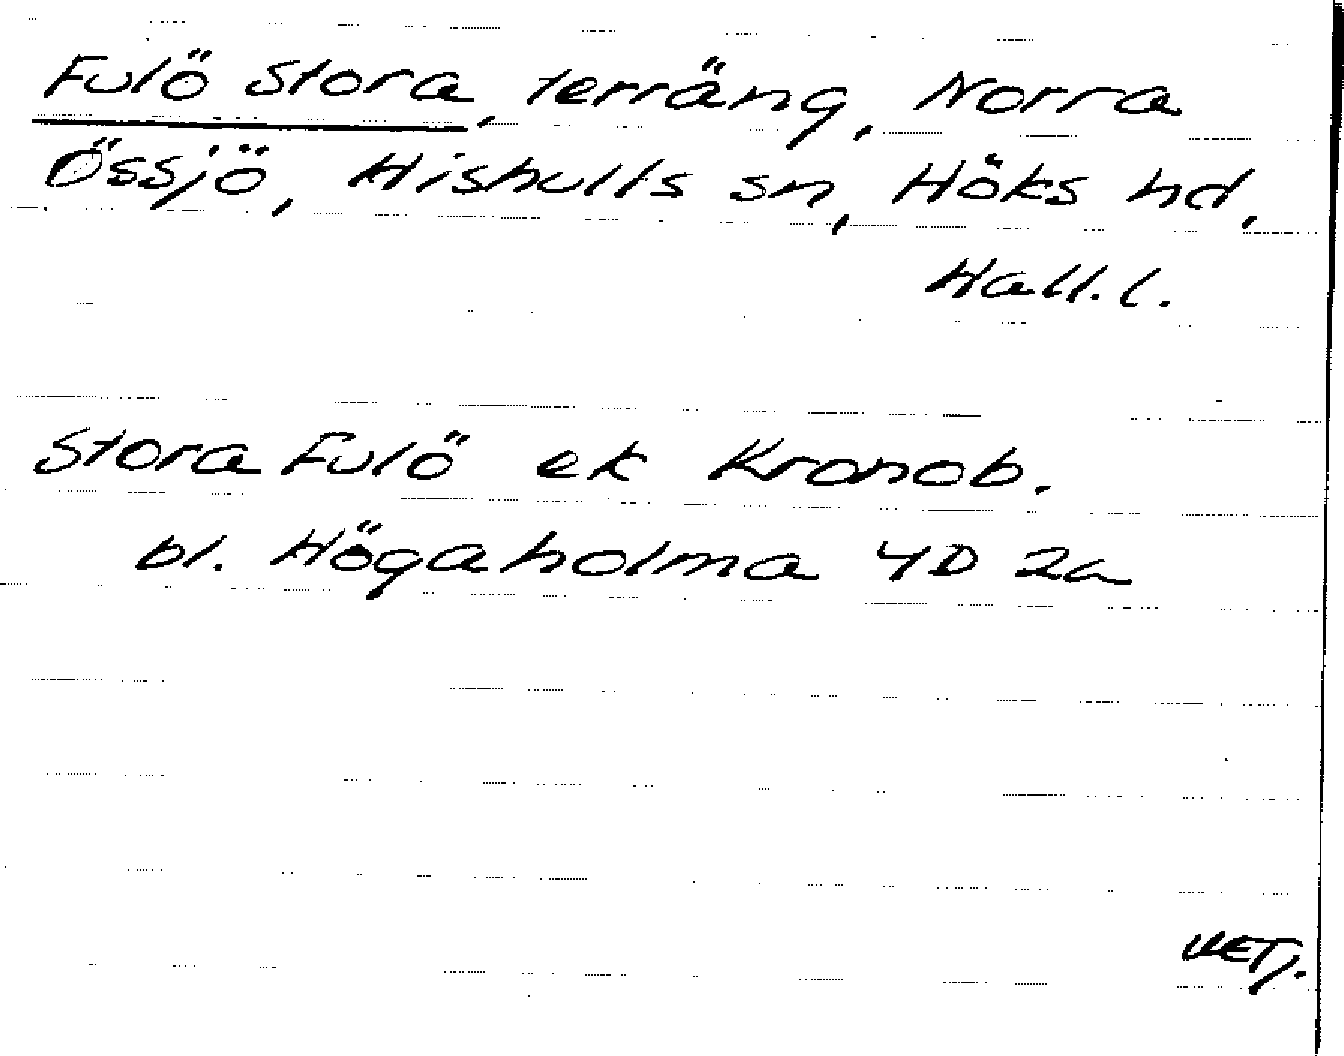 Fulö Stora, terräng, Norra
Össjö, Hishults sn, Höks hd,
Hall.l.
Stora Fulö ek Kronob.
bl. Högaholma 4D 2a